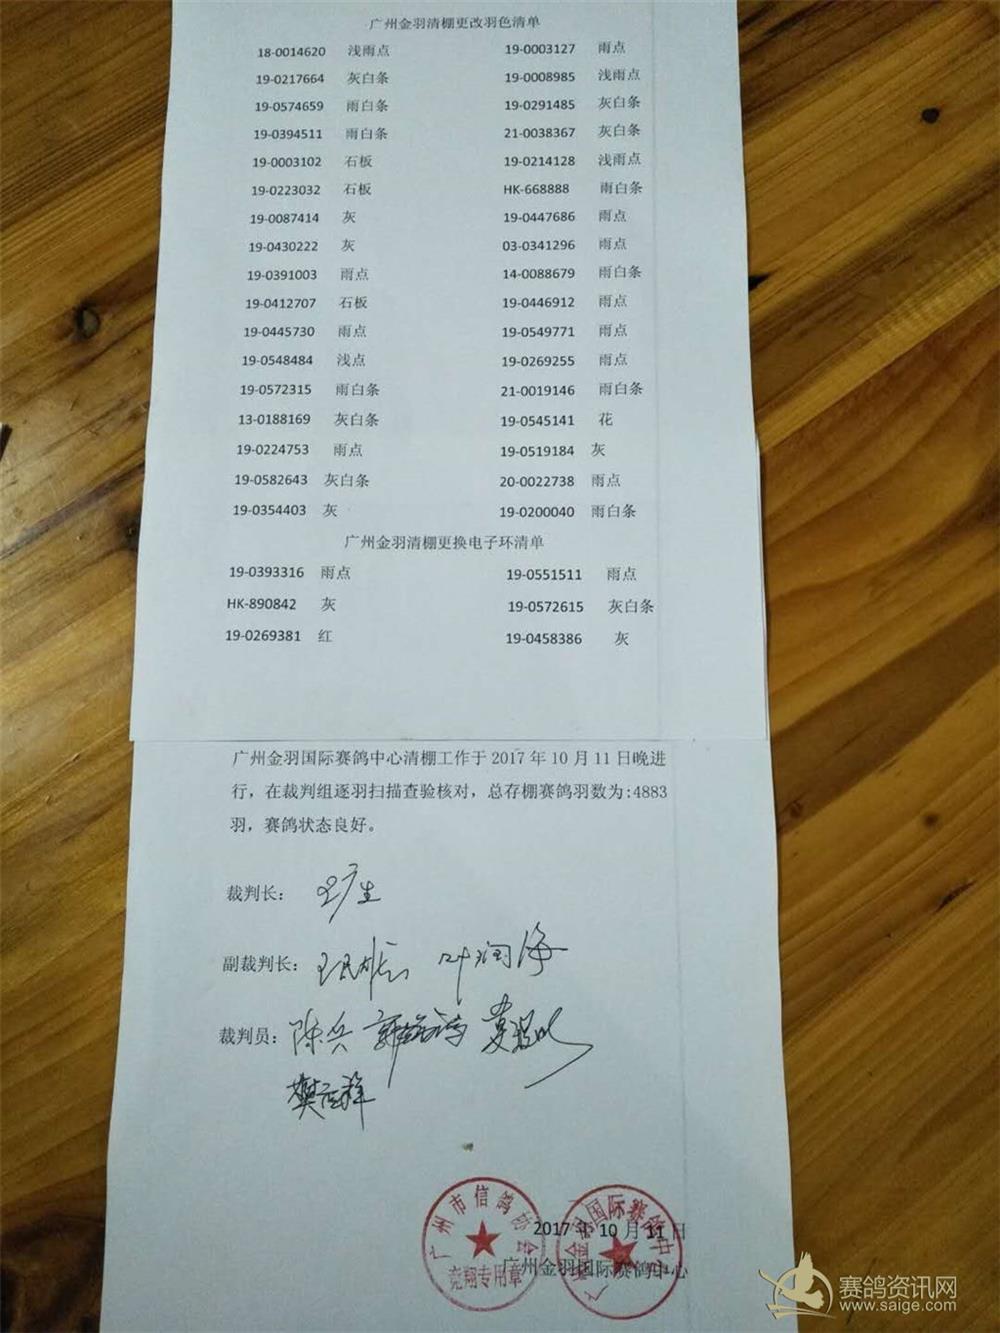 广州金羽清棚更改羽色清单
18-0014620 浅雨点 19-0003127 雨点
19-0217664 灰白条 19-0008985 浅雨点
19-0574659 雨白条 19-0291485 灰白条
19-0394511 雨白条 21-0038367 灰白条
19-0003102 石板 19-0214128 浅雨点
19-0223032 石板 HK-668888 雨白条
19-0087414 灰 19-0447686 雨点
19-0430222 灰 03-0341296 雨点
19-0391003 雨点 14-0088679 雨白条
19-0412707 石板 19-0446912 雨点
19-0445730 雨点 19-0549771 雨点
19-0548484 浅点 19-0269255 雨点
19-0572315 雨白条 21-0019146 雨白条
13-0188169 灰白条 19-0545141 花
19-0224753 雨点 19-0519184 灰
19-0582643 灰白条 20-0022738 雨点
19-0354403 灰 19-0200040 雨白条
广州金羽清棚更换电子环清单
19-0393316 雨点 19-0551511 雨点
HK-890842 灰 19-0572615 灰白条
19-0269381 红 19-0458386 灰
广州金羽国际赛鸽中心清棚工作于2017年10月11日晚进
行，在裁判组逐羽扫描查验核对，总存棚赛鸽羽数为:4883
羽，赛鸽状态良好。
裁判长：
副裁判长： 叶润海
裁判员： 陈兵
广州市信鸽协会
竞翔专用章
广州金羽国际赛鸽中心
2017年10月11日
广州金羽国际赛鸽中心
赛鸽资讯网
www.saige.com